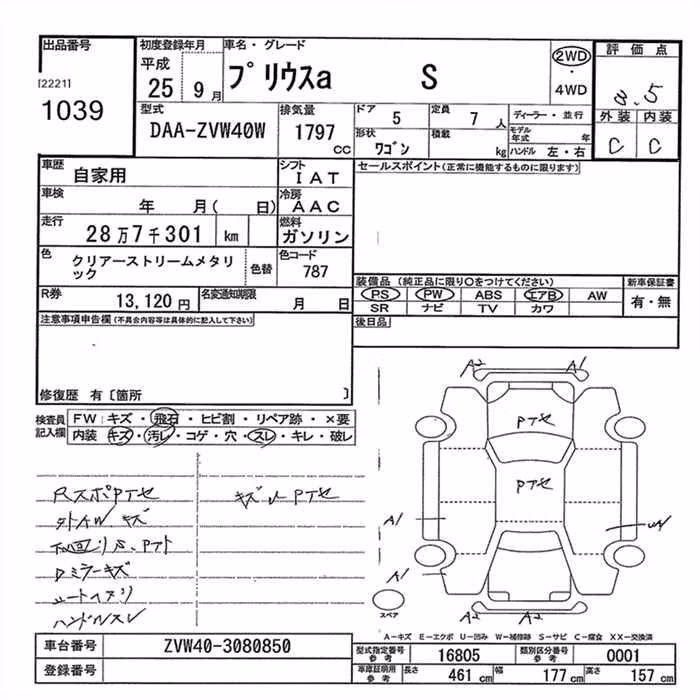 出品番号
[2221]
1039
初度登録年月
平成
25 9月
車名・グレード
プリウスa S
2WD
・
4WD
評価点
3.5
外装 内装
C C
型式
DAA-ZVW40W
排気量
1797 cc
ドア
5
定員
7 人
形状
ワゴン
積載
kg
ディーラー・並行
モデル年式 年
ハンドル 左・右
車歴
自家用
シフト
IAT
車検
年 月( 日)
冷房
AAC
走行
28万7千301 km
燃料
ガソリン
色
クリアーストリームメタリック
色替
色コード
787
R券
13,120円
名変通知期限
月 日
セールスポイント(正常に機能するものに限ります)
装備品 (純正品に限り○をつけてください)
PS PW ABS エアB AW
SR ナビ TV カワ
新車保証書
有・無
後日品
注意事項申告欄(不具合内容等は具体的に記入して下さい)
修復歴 有〔箇所 〕
検査員記入欄
FW キズ・飛石・ヒビ割・リペア跡・×要
内装 キズ・汚レ・コゲ・穴・スレ・キレ・破レ
RスポPTセ
キズUPTセ
外AW キズ
Dミラーキズ
シートヘタリ
ハンドルスレ
A2 A1
PTセ
PTセ
A1
A1
A2 A2
スペア
A-キズ E-エクボ U-凹み W-補修跡 S-サビ C-腐食 XX-交換済
車台番号
ZVW40-3080850
登録番号
型式指定番号 参考
16805
類別区分番号 参考
0001
車庫証明用 参考
長さ 461 cm 幅 177 cm 高さ 157 cm